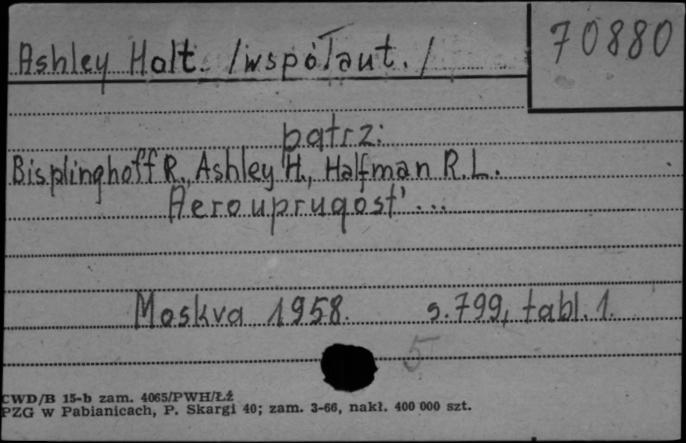 70880
Ashley Holt. /współaut./
patrz:
Bisplinghoff R., Ashley H., Halfman R.L.
Aerouprugost' ...
Moskva 1958. s.799, tabl. 1.
5
CWD/B 15-b zam. 4065/PWH/Łź
PZG w Pabianicach, P. Skargi 40; zam. 3-66, nakł. 400 000 szt.